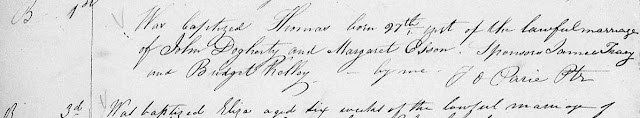 B 1st
Was baptized Thomas born 27th, ynst of the lawful marriage
of John Dogherty and Margaret Esson. Sponsors James Tracy
and Bridget Kelly. - by me J O
B 3d Was baptized Eliza aged six weeks of the lawful marriage of